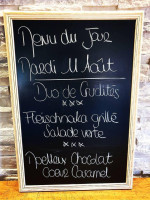 Menu du Jour
Mardi 11 Août
Duo de Crudités
xxx
Fleischnaka grillé
Salade verte
xxx
Moelleux Chocolat
Coeur Caramel